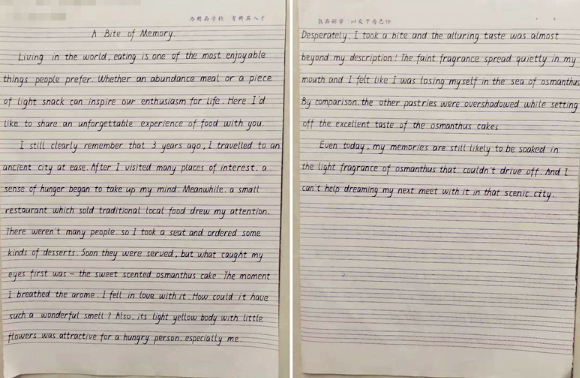 A Bite of Memory.
Living in the world, eating is one of the most enjoyable
things people prefer. Whether an abundance meal or a piece
of light snack can inspire our enthusiasm for life. Here I'd
like to share an unforgettable experience of food with you.
I still clearly remember that 3 years ago, I travelled to an
ancient city at ease. After I visited many places of interest, a
sense of hunger began to take up my mind. Meanwhile, a small
restaurant which sold traditional local food drew my attention.
There weren't many people, so I took a seat and ordered some
kinds of desserts. Soon they were served, but what caught my
eyes first was - the sweet scented osmanthus cake. The moment
I breathed the arome, I fell in love with it. How could it have
such a wonderful smell? Also, its light yellow body with little
flowers was attractive for a hungry person, especially me.
Desperately, I took a bite and the alluring taste was almost
beyond my description! The faint fragrance spread quietly in my
mouth and I felt like I was losing myself in the sea of osmanthus
By comparison, the other pastries were overshadowed while setting
off the excellent taste of the osmanthus cakes.
Even today, my memories are still likely to be soaked in
the light fragrance of osmanthus that couldn't drive off. And I
can't help dreaming my next meet with it in that scenic city.